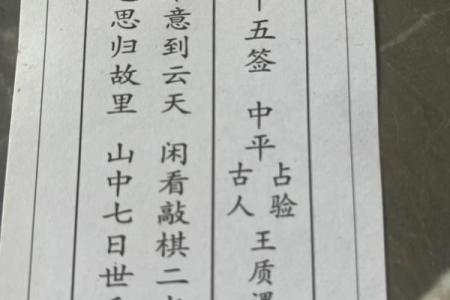 十五签 中平 占验古人 王质
意到云天 闲看敲棋二
思归故里 山中七日世